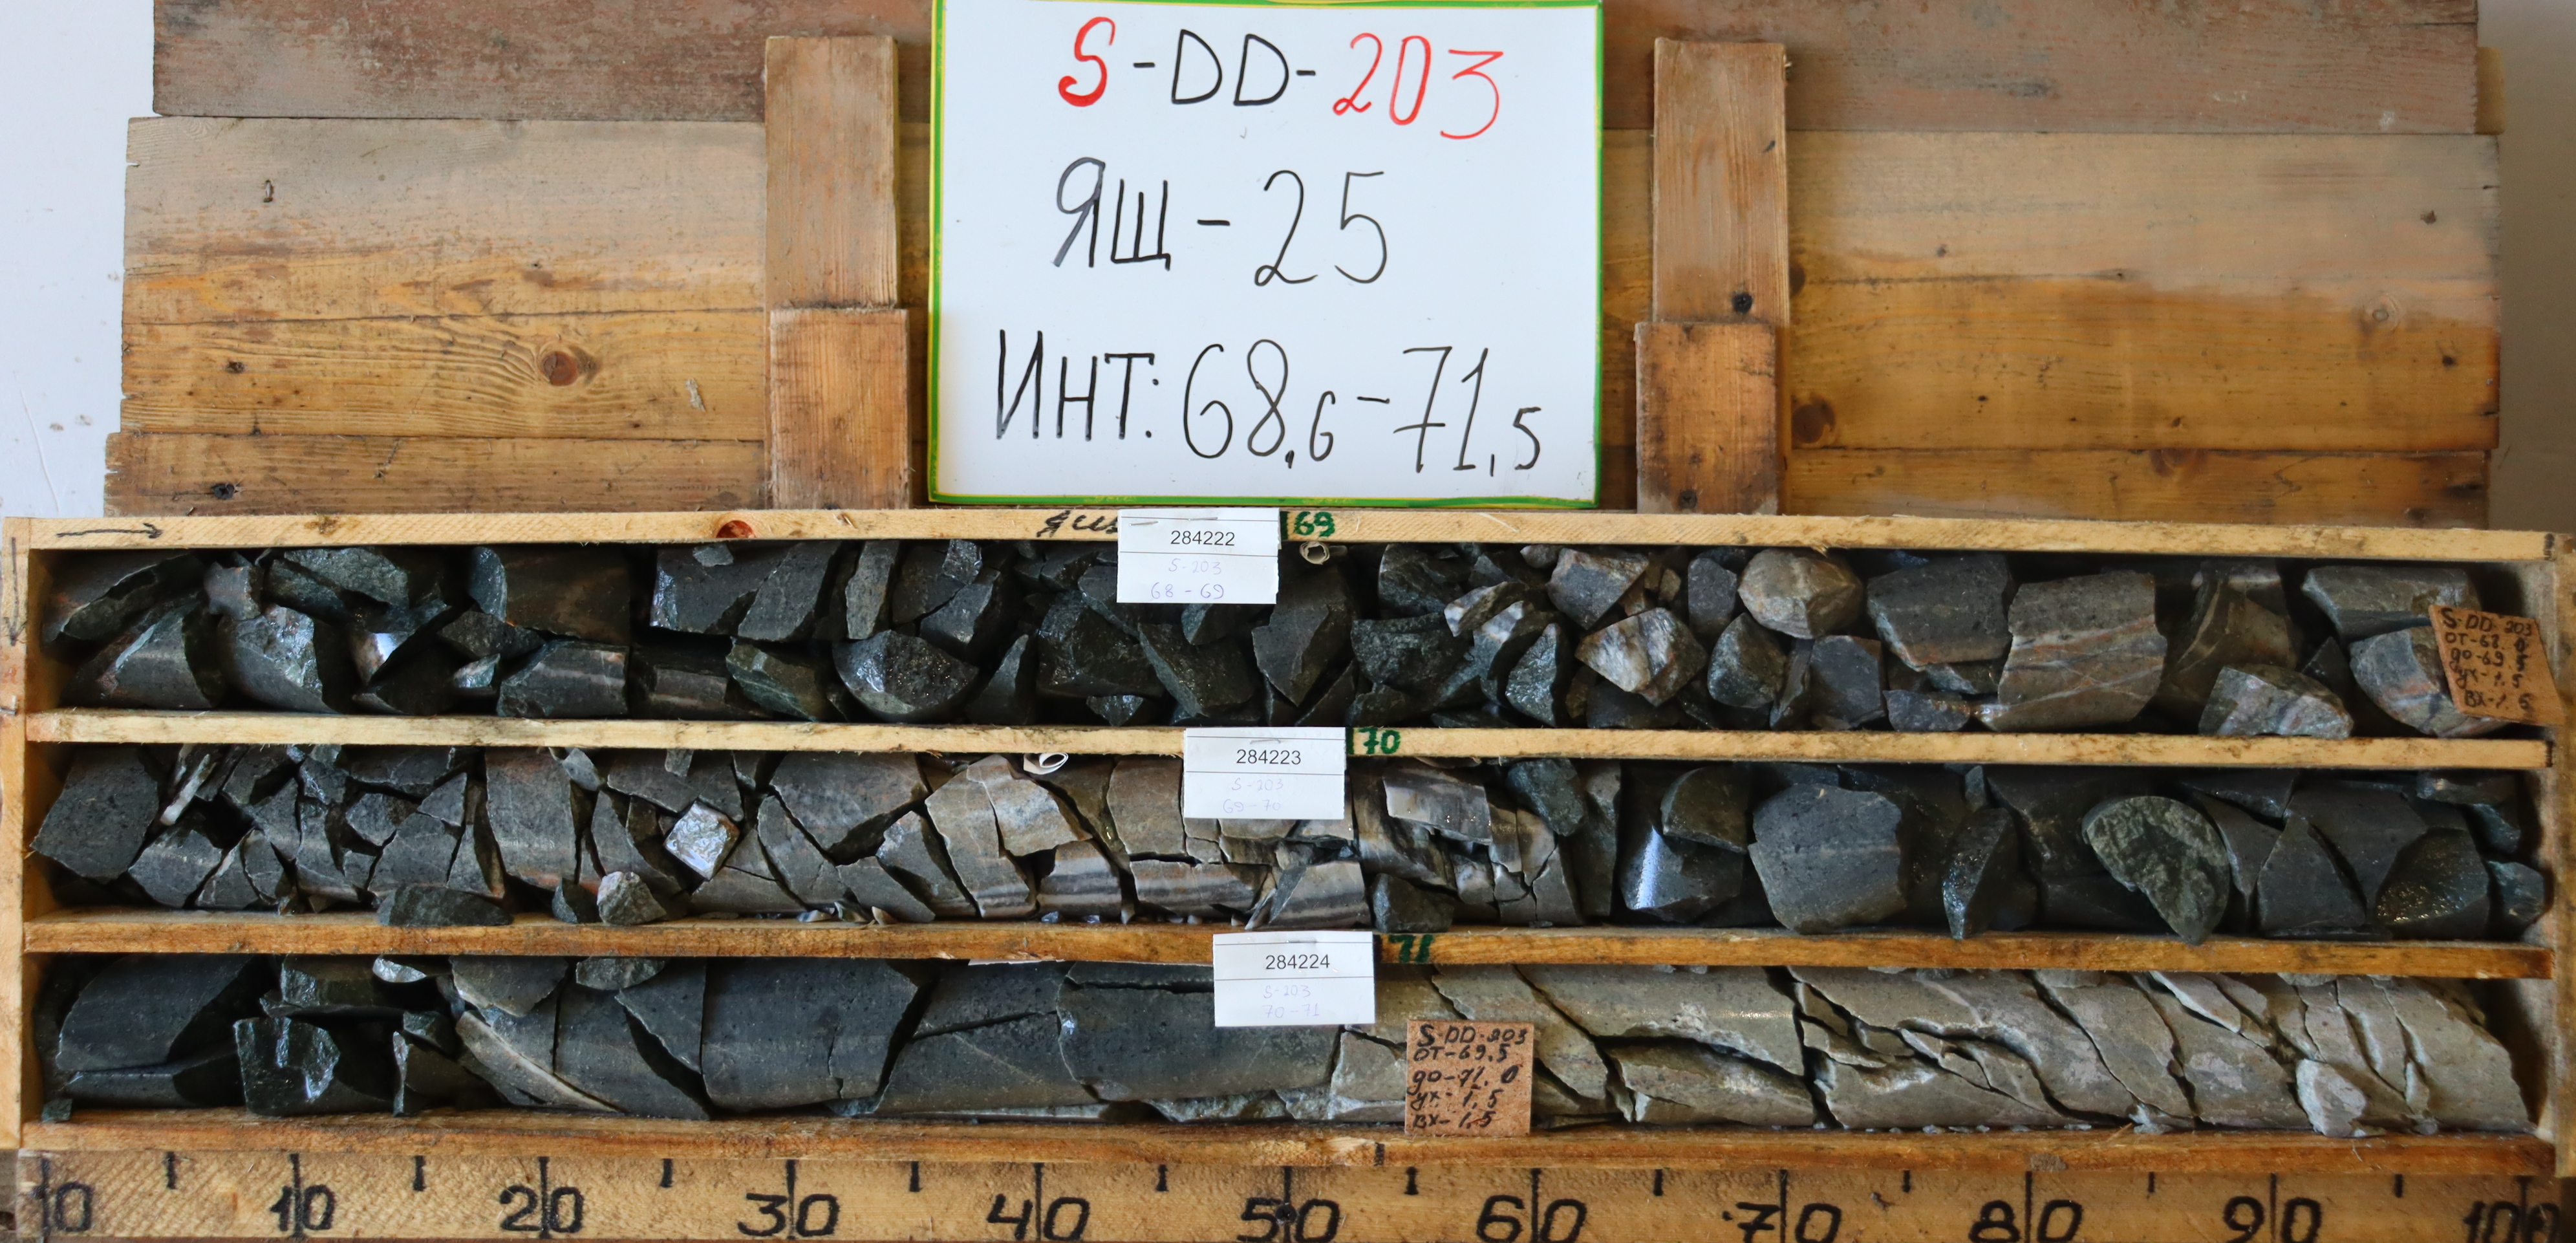 S-DD-203
ЯЩ-25
ИНТ: 68,6-71,5
169
284222
S-203
68-69
S-DD-203
до-69.5
ух-1.5
Вх-1.5
170
284223
S-203
69-70
71
284224
S-203
70-71
S-DD-203
от-69.5
до-71.0
ух-1.5
Вх-1.5
0 10 20 30 40 50 60 70 80 90 100